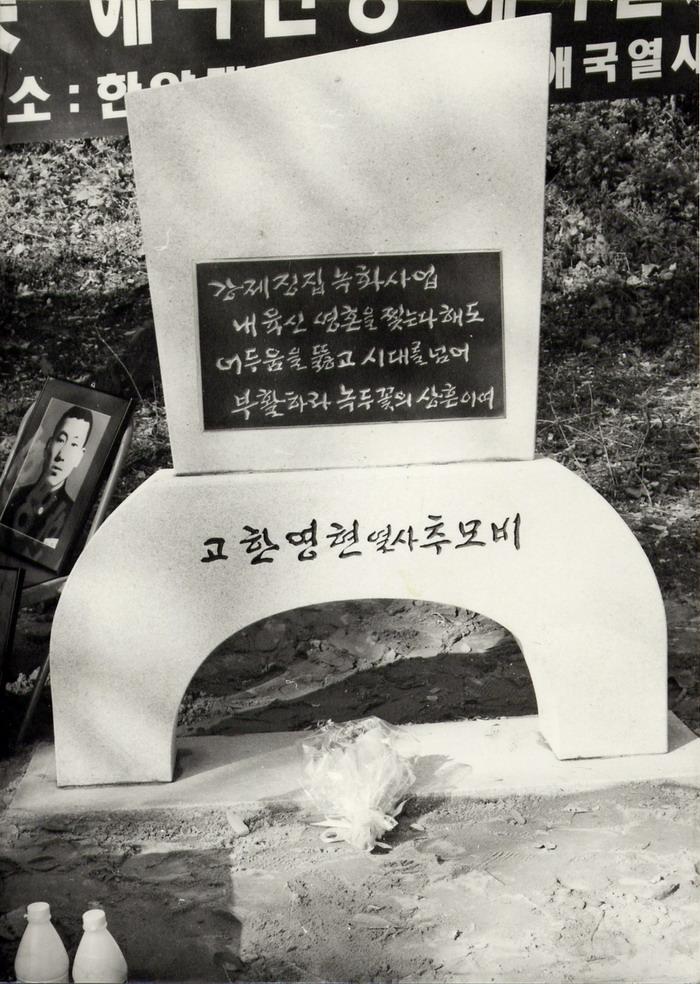 애국
소 : 한양대
애국열사
강제징집 녹화사업
내 육신 영혼을 찢는다 해도
어두움을 뚫고 시대를 넘어
부활하라 녹두꽃의 상흔이여
고 한영현 열사 추모비